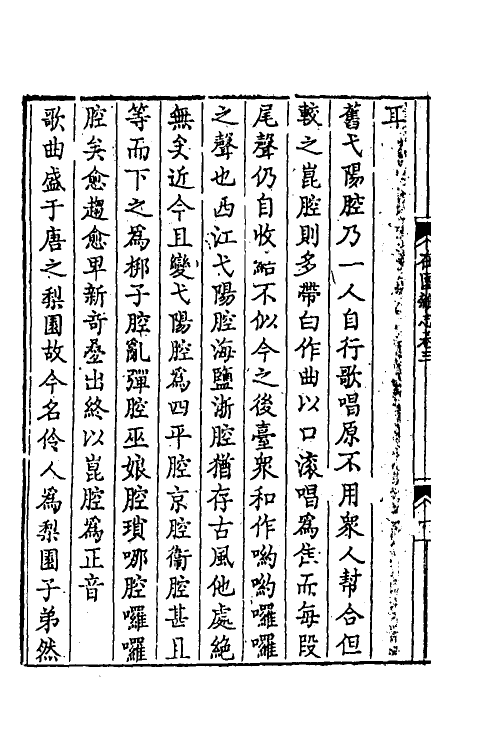 耳
舊弋陽腔乃一人自行歌唱原不用衆人幇合但
較之崑腔則多帶白作曲以口滚唱爲佳而每段
尾聲仍自收結不似今之後臺衆和作喲喲囉囉
之聲也西江弋陽腔海鹽浙腔猶存古風他處絶
無矣近今且變弋陽腔爲四平腔京腔衛腔甚且
等而下之爲梆子腔亂彈腔巫娘腔瑣哪腔囉囉
腔矣愈趨愈卑新奇叠出終以崑腔爲正音
歌曲盛于唐之梨園故今名伶人爲梨園子弟然
在園雜志卷三